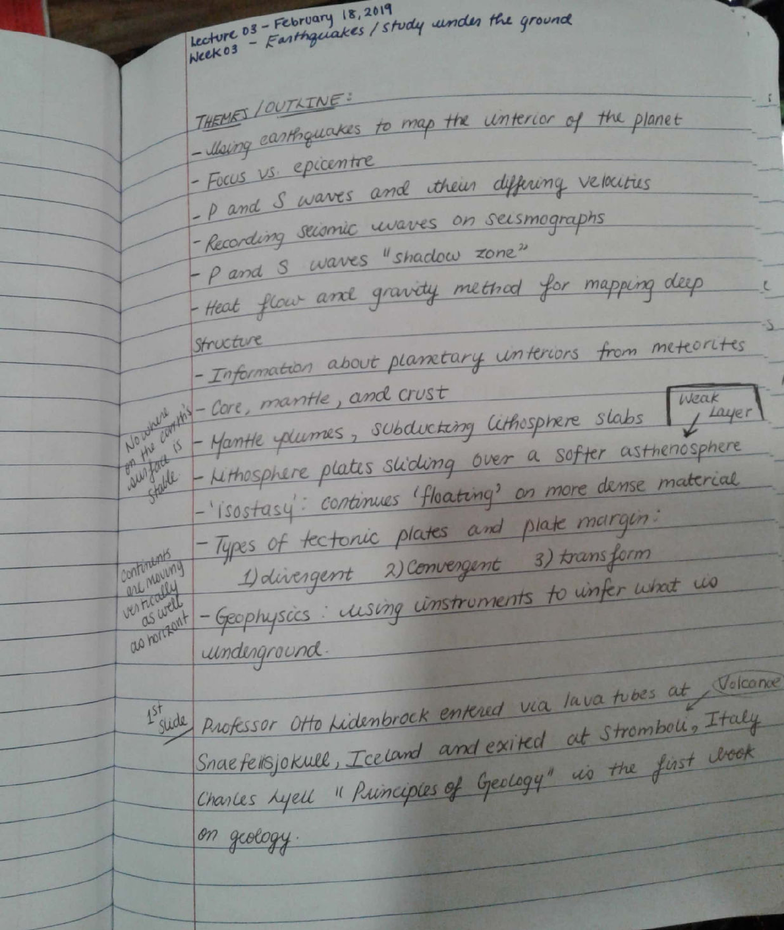 Lecture 03 - February 18, 2019
Week 03 - Earthquakes / study under the ground
THEMES / OUTLINE :
- Using earthquakes to map the interior of the planet
- Focus vs. epicentre
- P and S waves and their differing velocities
- Recording seismic waves on seismographs
- P and S waves "shadow zone"
- Heat flow and gravity method for mapping deep
structure
- Information about planetary interiors from meteorites
- Core, mantle, and crust
Nowhere
on the earth's
surface is
stable
- Mantle plumes, subducting lithosphere slabs
Weak
Layer
- Lithosphere plates sliding over a softer asthenosphere
- 'isostasy' : continues 'floating' on more dense material
- Types of tectonic plates and plate margin :
1) divergent 2) Convergent 3) transform
Continents
are moving
vertically
as well
as horizont
- Geophysics : using instruments to infer what is
underground.
1st
slide
Professor Otto Lidenbrock entered via lava tubes at
Volcanoe
Snaefellsjokull, Iceland and exited at Stromboli, Italy
Charles Lyell "Principles of Geology" is the first book
on geology.